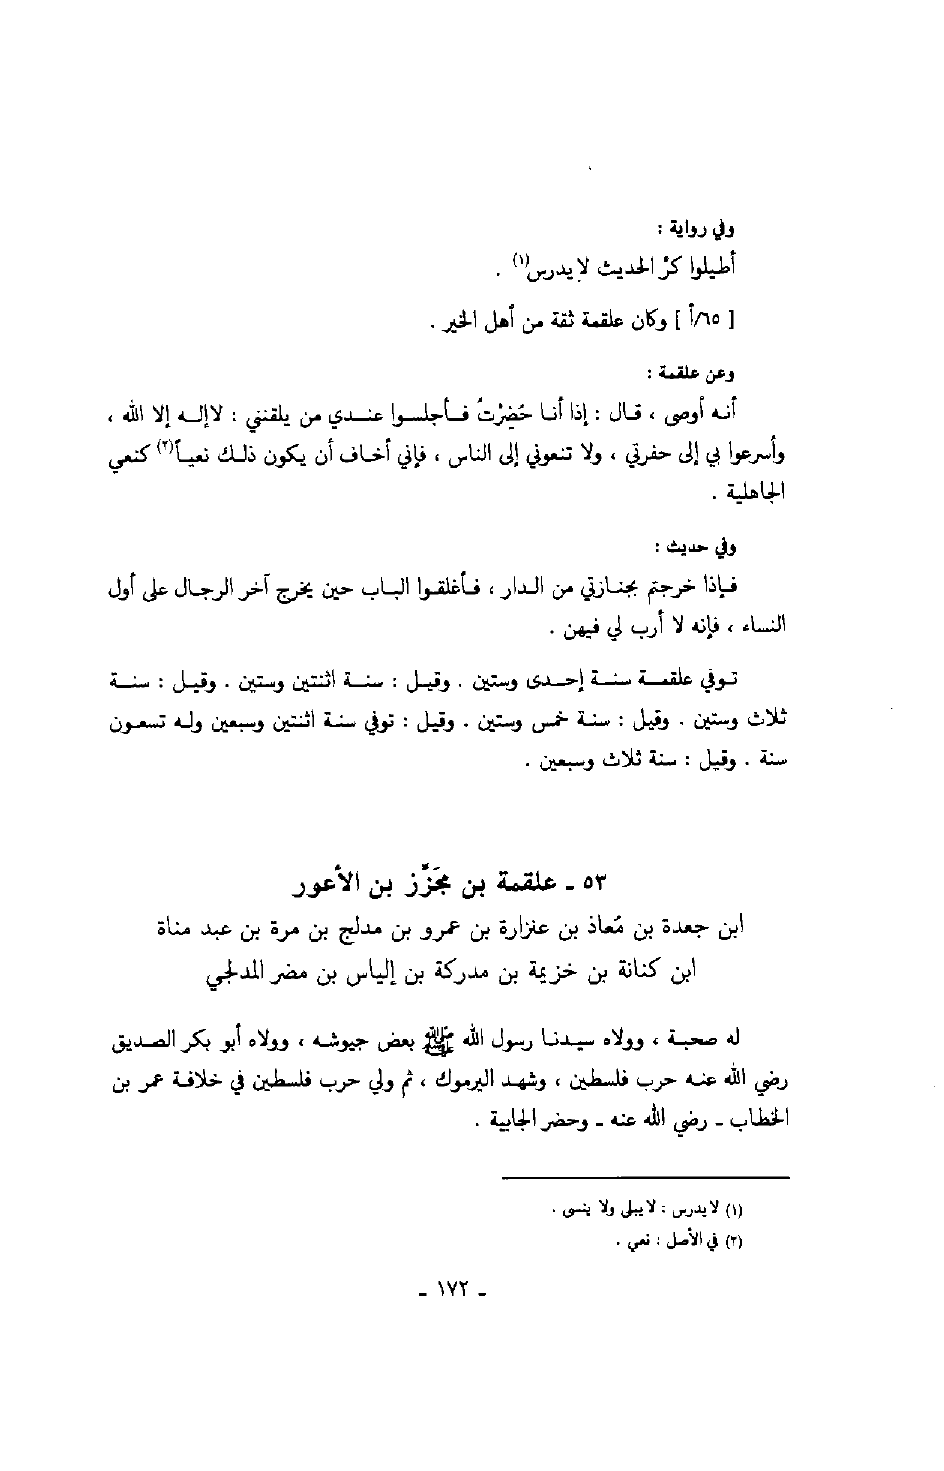 وفي رواية :
أطيلوا كرَّ الحديث لا يدرس(١) .
[ ٦٥/أ ] وكان علقمة ثقة من أهل الخير .
وعن علقمة :
أنه أوصى ، قال : إذا أنا حُضِرْتُ فأجلسوا عندي من يلقنني : لا إله إلا الله ،
وأسرعوا بي إلى حفرتي ، ولا تنعوني إلى الناس ، فإني أخاف أن يكون ذلك نعياً(٢) كنعي
الجاهلية .
وفي حديث :
فإذا خرجتم بجنازتي من الدار ، فأغلقوا الباب حين يخرج آخر الرجال على أول
النساء ، فإنه لا أرب لي فيهن .
توفي علقمة سنة إحدى وستين . وقيل : سنة اثنتين وستين . وقيل : سنة
ثلاث وستين . وقيل : سنة خمس وستين . وقيل : توفي سنة اثنتين وسبعين وله تسعون
سنة . وقيل : سنة ثلاث وسبعين .
٥٣ ـ علقمة بن مجَزِّز بن الأعور
ابن جعدة بن مُعاذ بن عنزارة بن عمرو بن مدلج بن مرة بن عبد مناة
ابن كنانة بن خزيمة بن مدركة بن إلياس بن مضر المدلجي
له صحبة ، وولاه سيدنا رسول الله ﷺ بعض جيوشه ، وولاه أبو بكر الصديق
رضي الله عنه حرب فلسطين ، وشهد اليرموك ، ثم ولي حرب فلسطين في خلافة عمر بن
الخطاب ـ رضي الله عنه ـ وحضر الجابية .
(١) لا يدرس : لا يبلى ولا ينسى .
(٢) في الأصل : نعي .
ـ ١٧٢ ـ